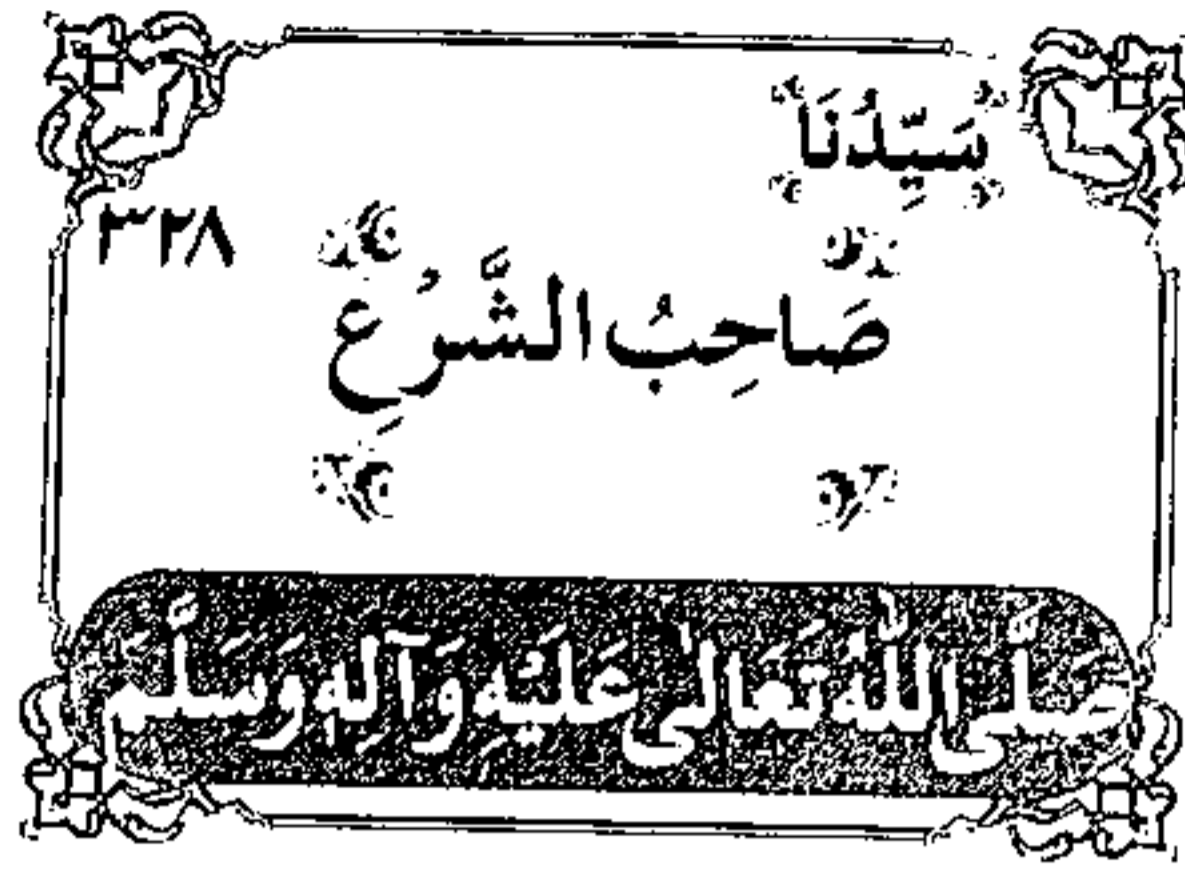 سَيِّدُنَا
٣٢٨
صَاحِبُ الشَّرُعِ
صَلَّى اللّٰهُ تَعَالٰى عَلَيْهِ وَآلِهٖ وَسَلَّمَ